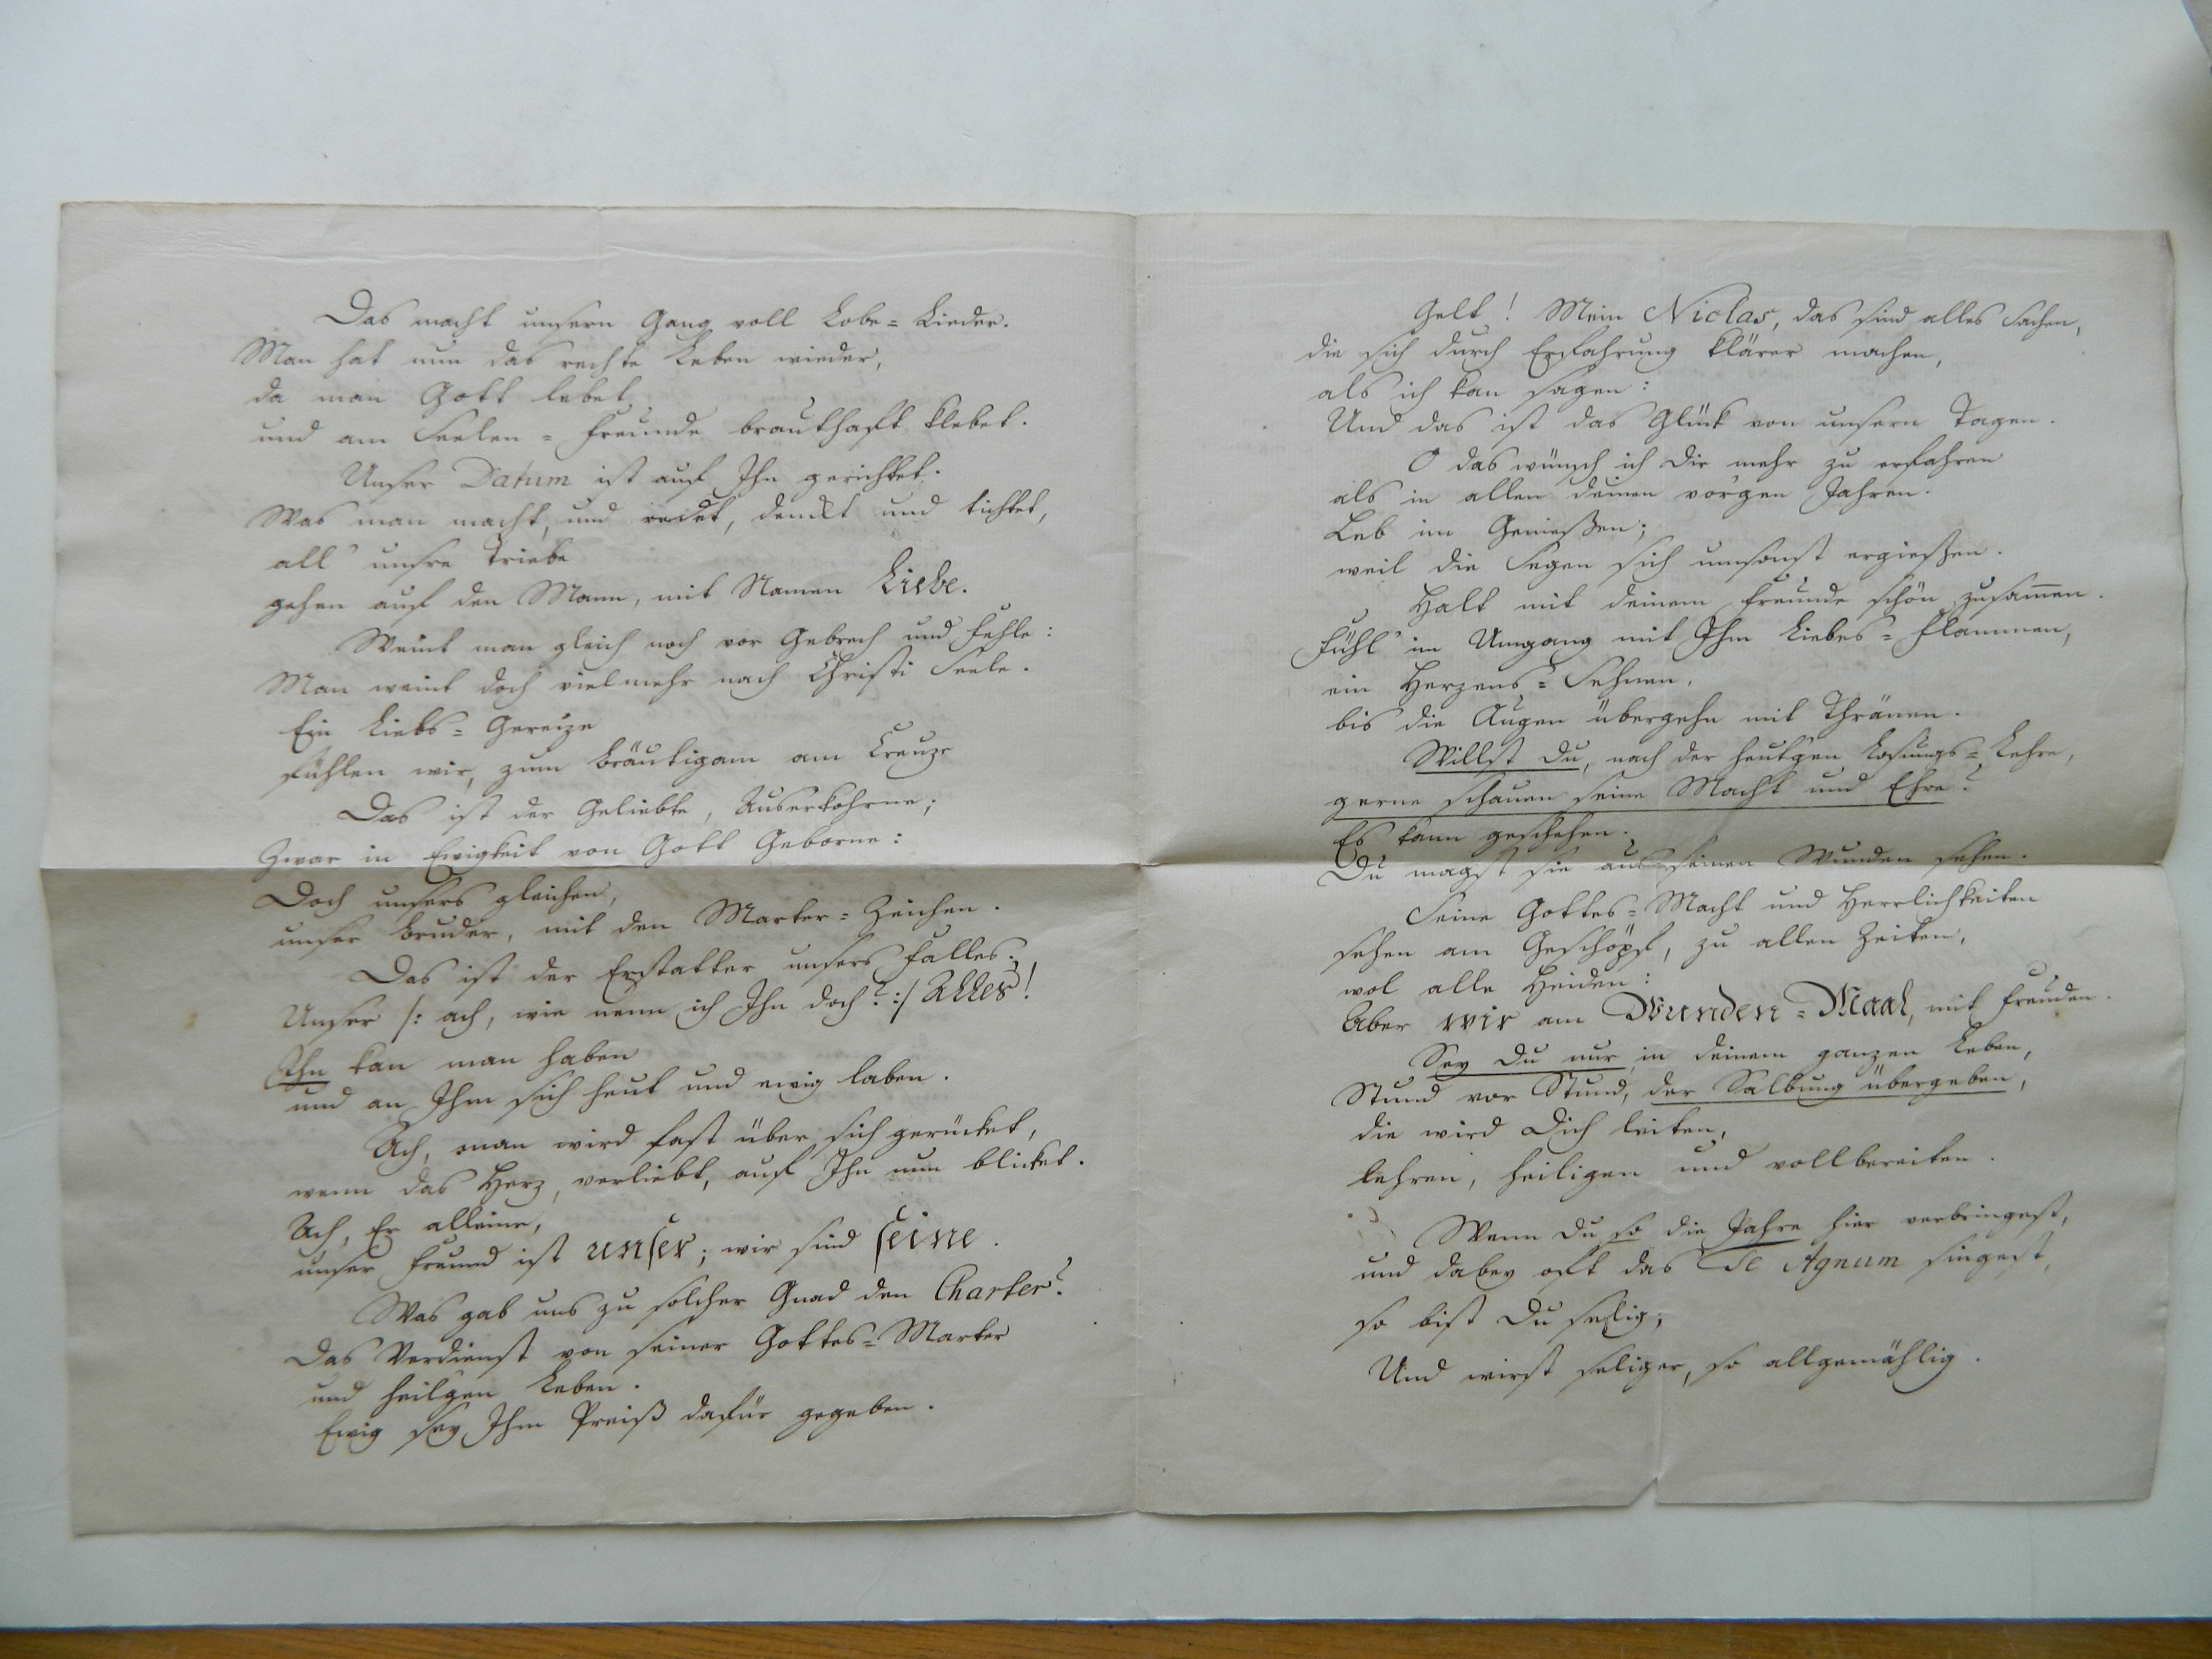 Das macht unsern Gang voll Lobe=Lieder.
Man hat nun das rechte Leben wieder,
da man Gott lebet
und am Seelen=Freunde brauthaft klebet.
Unser Datum ist auf Ihn gerichtet.
Was man macht, und redet, denckt und tichtet,
all' unsre Triebe
gehen auf den Mann, mit Namen Liebe.
Weint man gleich noch vor Gebrech und Fehle:
Man weint doch vielmehr nach Christi Seele.
Ein Liebs=Gereize
fühlen wir, zum Bräutigam am Creuze
Das ist der Geliebte, Auserkohrne;
Zwar in Ewigkeit von Gott Geborne:
Doch unsers gleichen,
unser Bruder, mit den Marter=Zeichen.
Das ist der Erstatter unsers Falles.
Unser /: ach, wie nenn ich Ihn doch? :/ Alles!
Ihn kan man haben
und an Ihm sich heut und ewig laben.
Ach, man wird fast über sich gerücket,
wenn das Herz, verliebt, auf Ihn nun blicket.
Ach, Er alleine,
unser Freund ist unser; wir sind seine.
Was gab uns zu solcher Gnad den Charter?
Das Verdienst von seiner Gottes=Marter
und heilgen Leben.
Ewig sey Ihm Preiß dafür gegeben.
Gelt! Mein Niclas, das sind alles Sachen,
die sich durch Erfahrung klärer machen,
als ich kan sagen:
Und das ist das Glück von unsern Tagen.
O das wünsch ich Dir mehr zu erfahren
als in allen deinen vor'gen Jahren.
Leb im Genießen;
weil die Segen sich umsonst ergießen.
Halt mit deinem Freunde schön zusam̄en.
Fühl' im Umgang mit Ihm Liebes=Flammen,
ein Herzens=Sehnen,
bis die Augen übergehn mit Thränen.
Willst Du, nach der heutgen Losungs=Lehre,
gerne schauen seine Macht und Ehre?
Es kann geschehen.
Du magst sie aus seinen Wunden sehen.
Seine Gottes=Macht und Herrlichkeiten
sehen am Geschöpf, zu allen Zeiten,
wol alle Heiden:
Aber wir am Wunden=Maal, mit Freuden.
Sey Du nur in deinem ganzen Leben,
Stund vor Stund, der Salbung übergeben,
die wird Dich leiten,
lehren, heiligen und vollbereiten.
Wenn Du so die Jahre hier verbringest,
und dabey oft das Te Agnum singest,
so bist Du selig;
Und wirst seliger, so allgemählig.